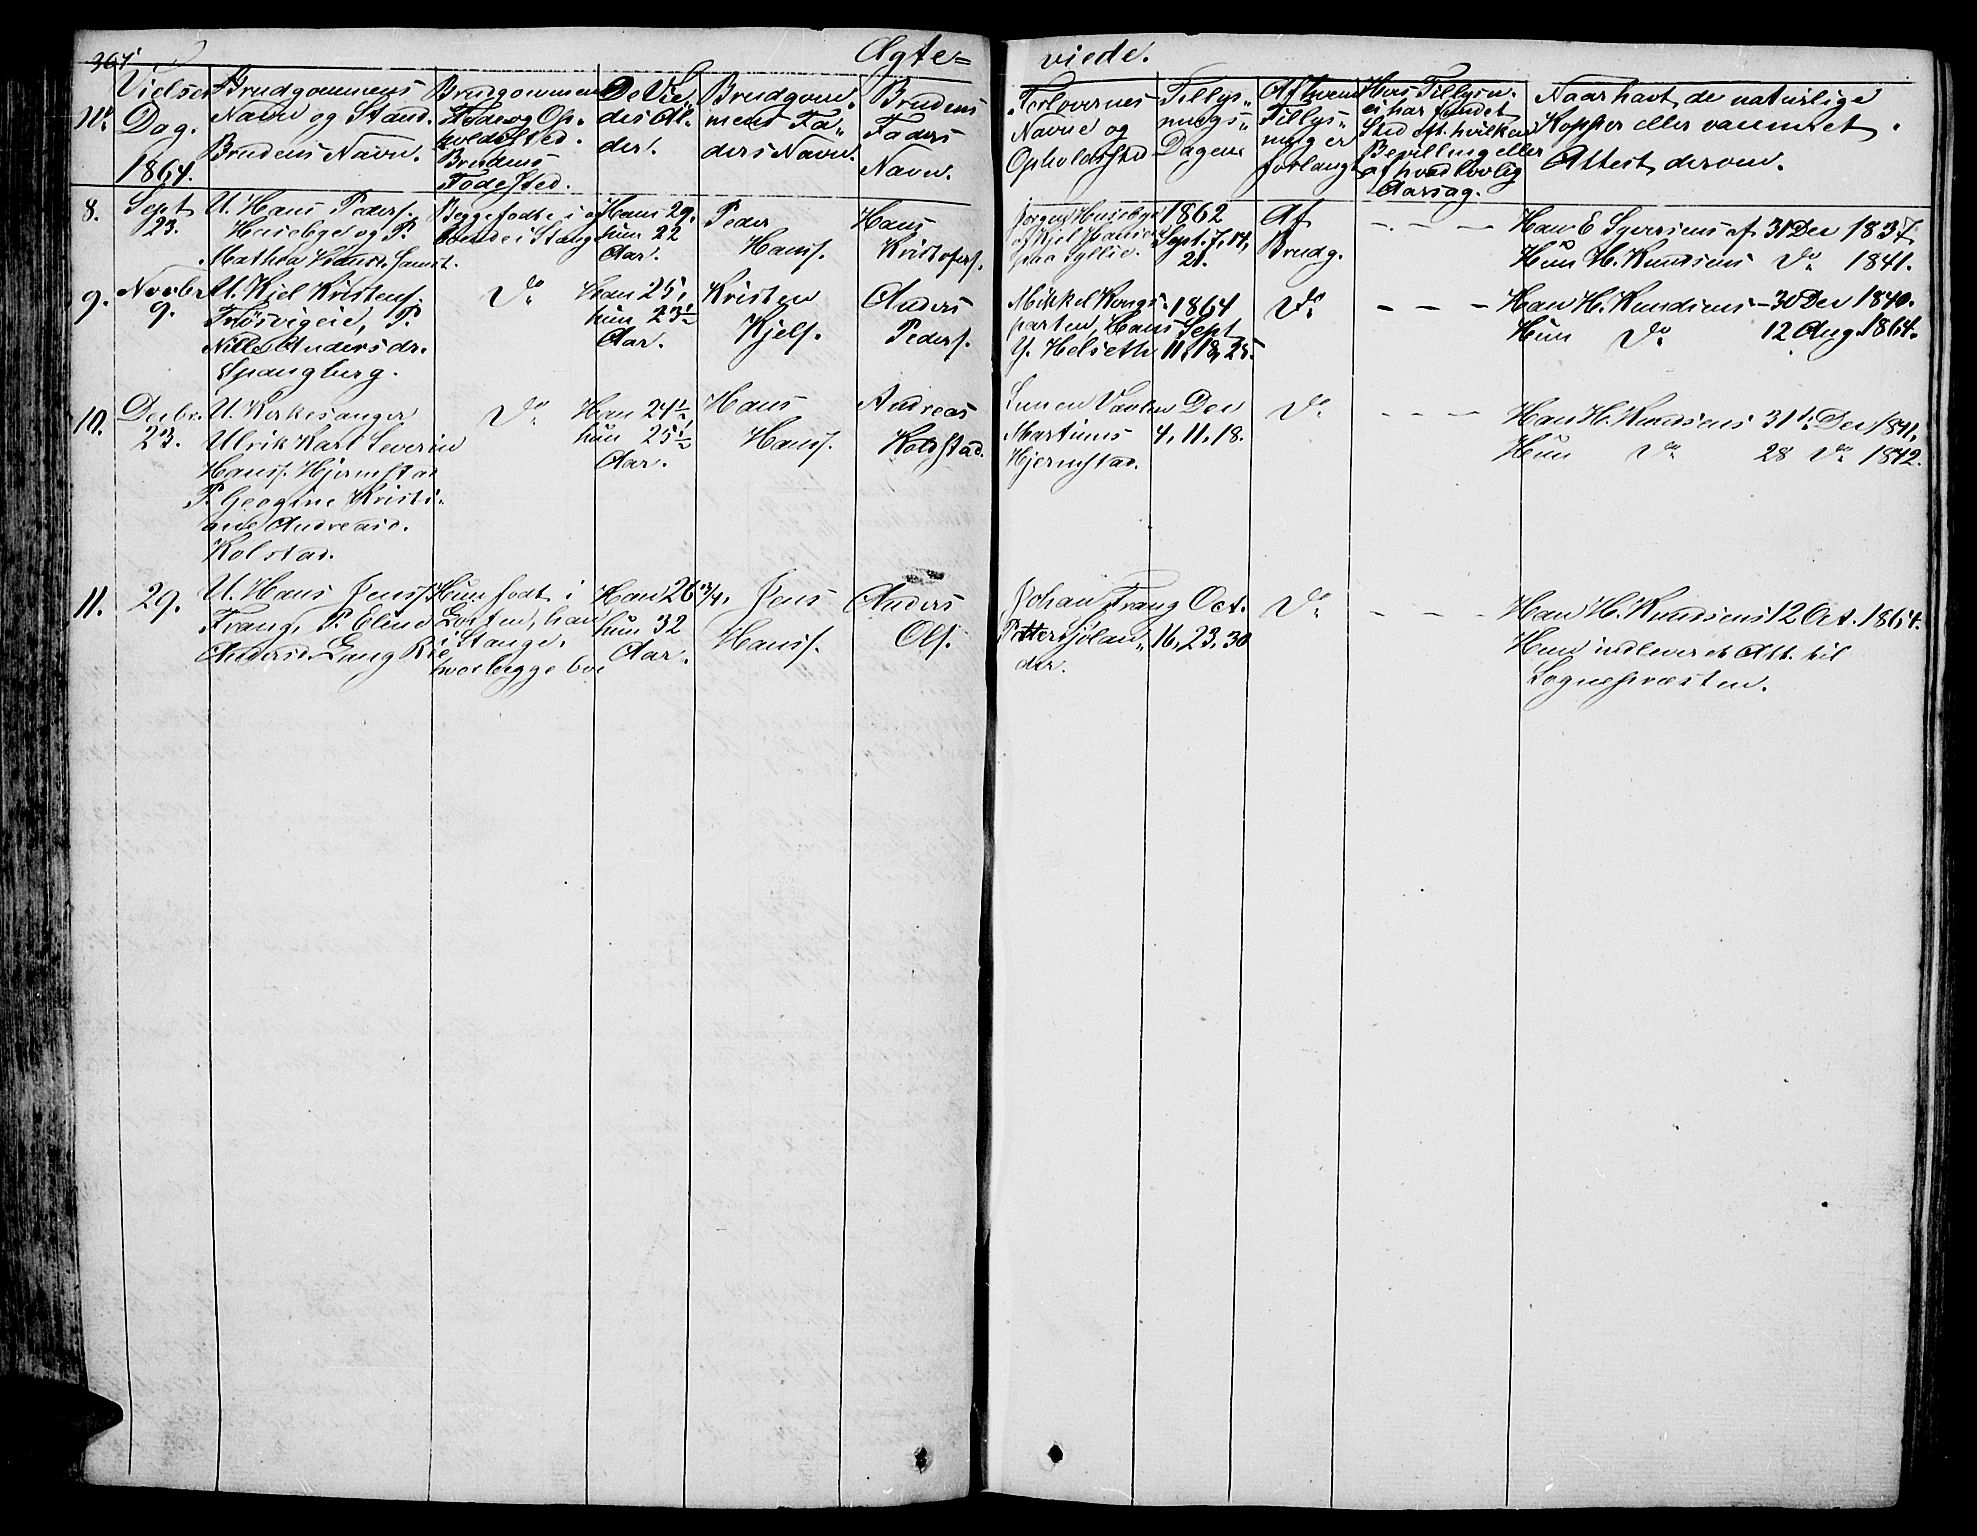 364
Ægte= viede.
No.
Vielses
Dag.
1864.
Brudgommens
Navn og Stand.
Brudens Navn.
Brudgommens
Føde og Op-
holdssted.
Brudens
Fødested.
De Vie-
des Al-
der.
Brudgom-
mens Fa-
ders Navn.
Brudens
Faders
Navn.
Forlovernes
Navne og
Opholdssted
Tillys-
nings-
Dagene
Af hvem
Tillys-
ning er
forlangt
Hvis Tillysn.
ei har fundet
Sted eft. hvilken
Bevilling eller
af hvad lovlig
Aarsag.
Naar havt de naturlige
Kopper eller vaccineret.
Attest derom.
8.
Sept
23.
U. Hans Peders.
Husebye og P.
Mathea Hansd. samst.
Begge fødte i og
boende i Stange
Han 29.
hun 22
Aar.
Peder
Hanss.
Hans
Kristofers.
Jørgen Husebye
og Kjel Hansen
paa Gyllie.
1862
Sept. 7, 14,
21.
Af
Brudg.
- - -
Han E Syversens af 31 Dec 1837
Hun H. Knudsens Do 1841.
9.
Novbr
9.
U. Kjel Kristens.
Frøsvigeie, P.
Nille Andersdr.
Spangberg.
Do
Han 25,
hun 23½
Aar.
Kristen
Kjels.
Anders
Peders.
Mikkel Kongs-
parten, Hans
Y. Helseth
1864
Sept
11, 18, 25.
Do
- - -
Han H. Knudsens - 30 Dec 1840.
Hun Do 12 Aug. 1864.
10.
Decbr.
23.
U. Kirkesanger
Ulrik Karl Severin
Hanss. Hjermstad
P. Geogine Kristi-
ane Andreasd.
Kolstad.
Do
Han 24½
hun 25½
Aar.
Hans
Hanss.
Andreas
Koldstad.
Martinus
Hjermstad.
Dec
4, 11, 18.
Do
- - -
Han H. Knudsens 31t. Dec 1841,
Hun Do 28 Do 1842.
11.
29.
U. Hans Jenss.
Frang, P. Eline
Andersd. Lung
Hun født i
Løiten, han
i Stange,
hvor begge boe
Han 26 3/4,
hun 32
Aar.
Jens
Hanss.
Anders
Ols.
Johan Frang
Petter Sjølan-
der.
Oct.
16, 23, 30
Do
- - -
Han H. Knudsens 12 Oct. 1864.
Hun indleveret Att. til
Sognepræsten.